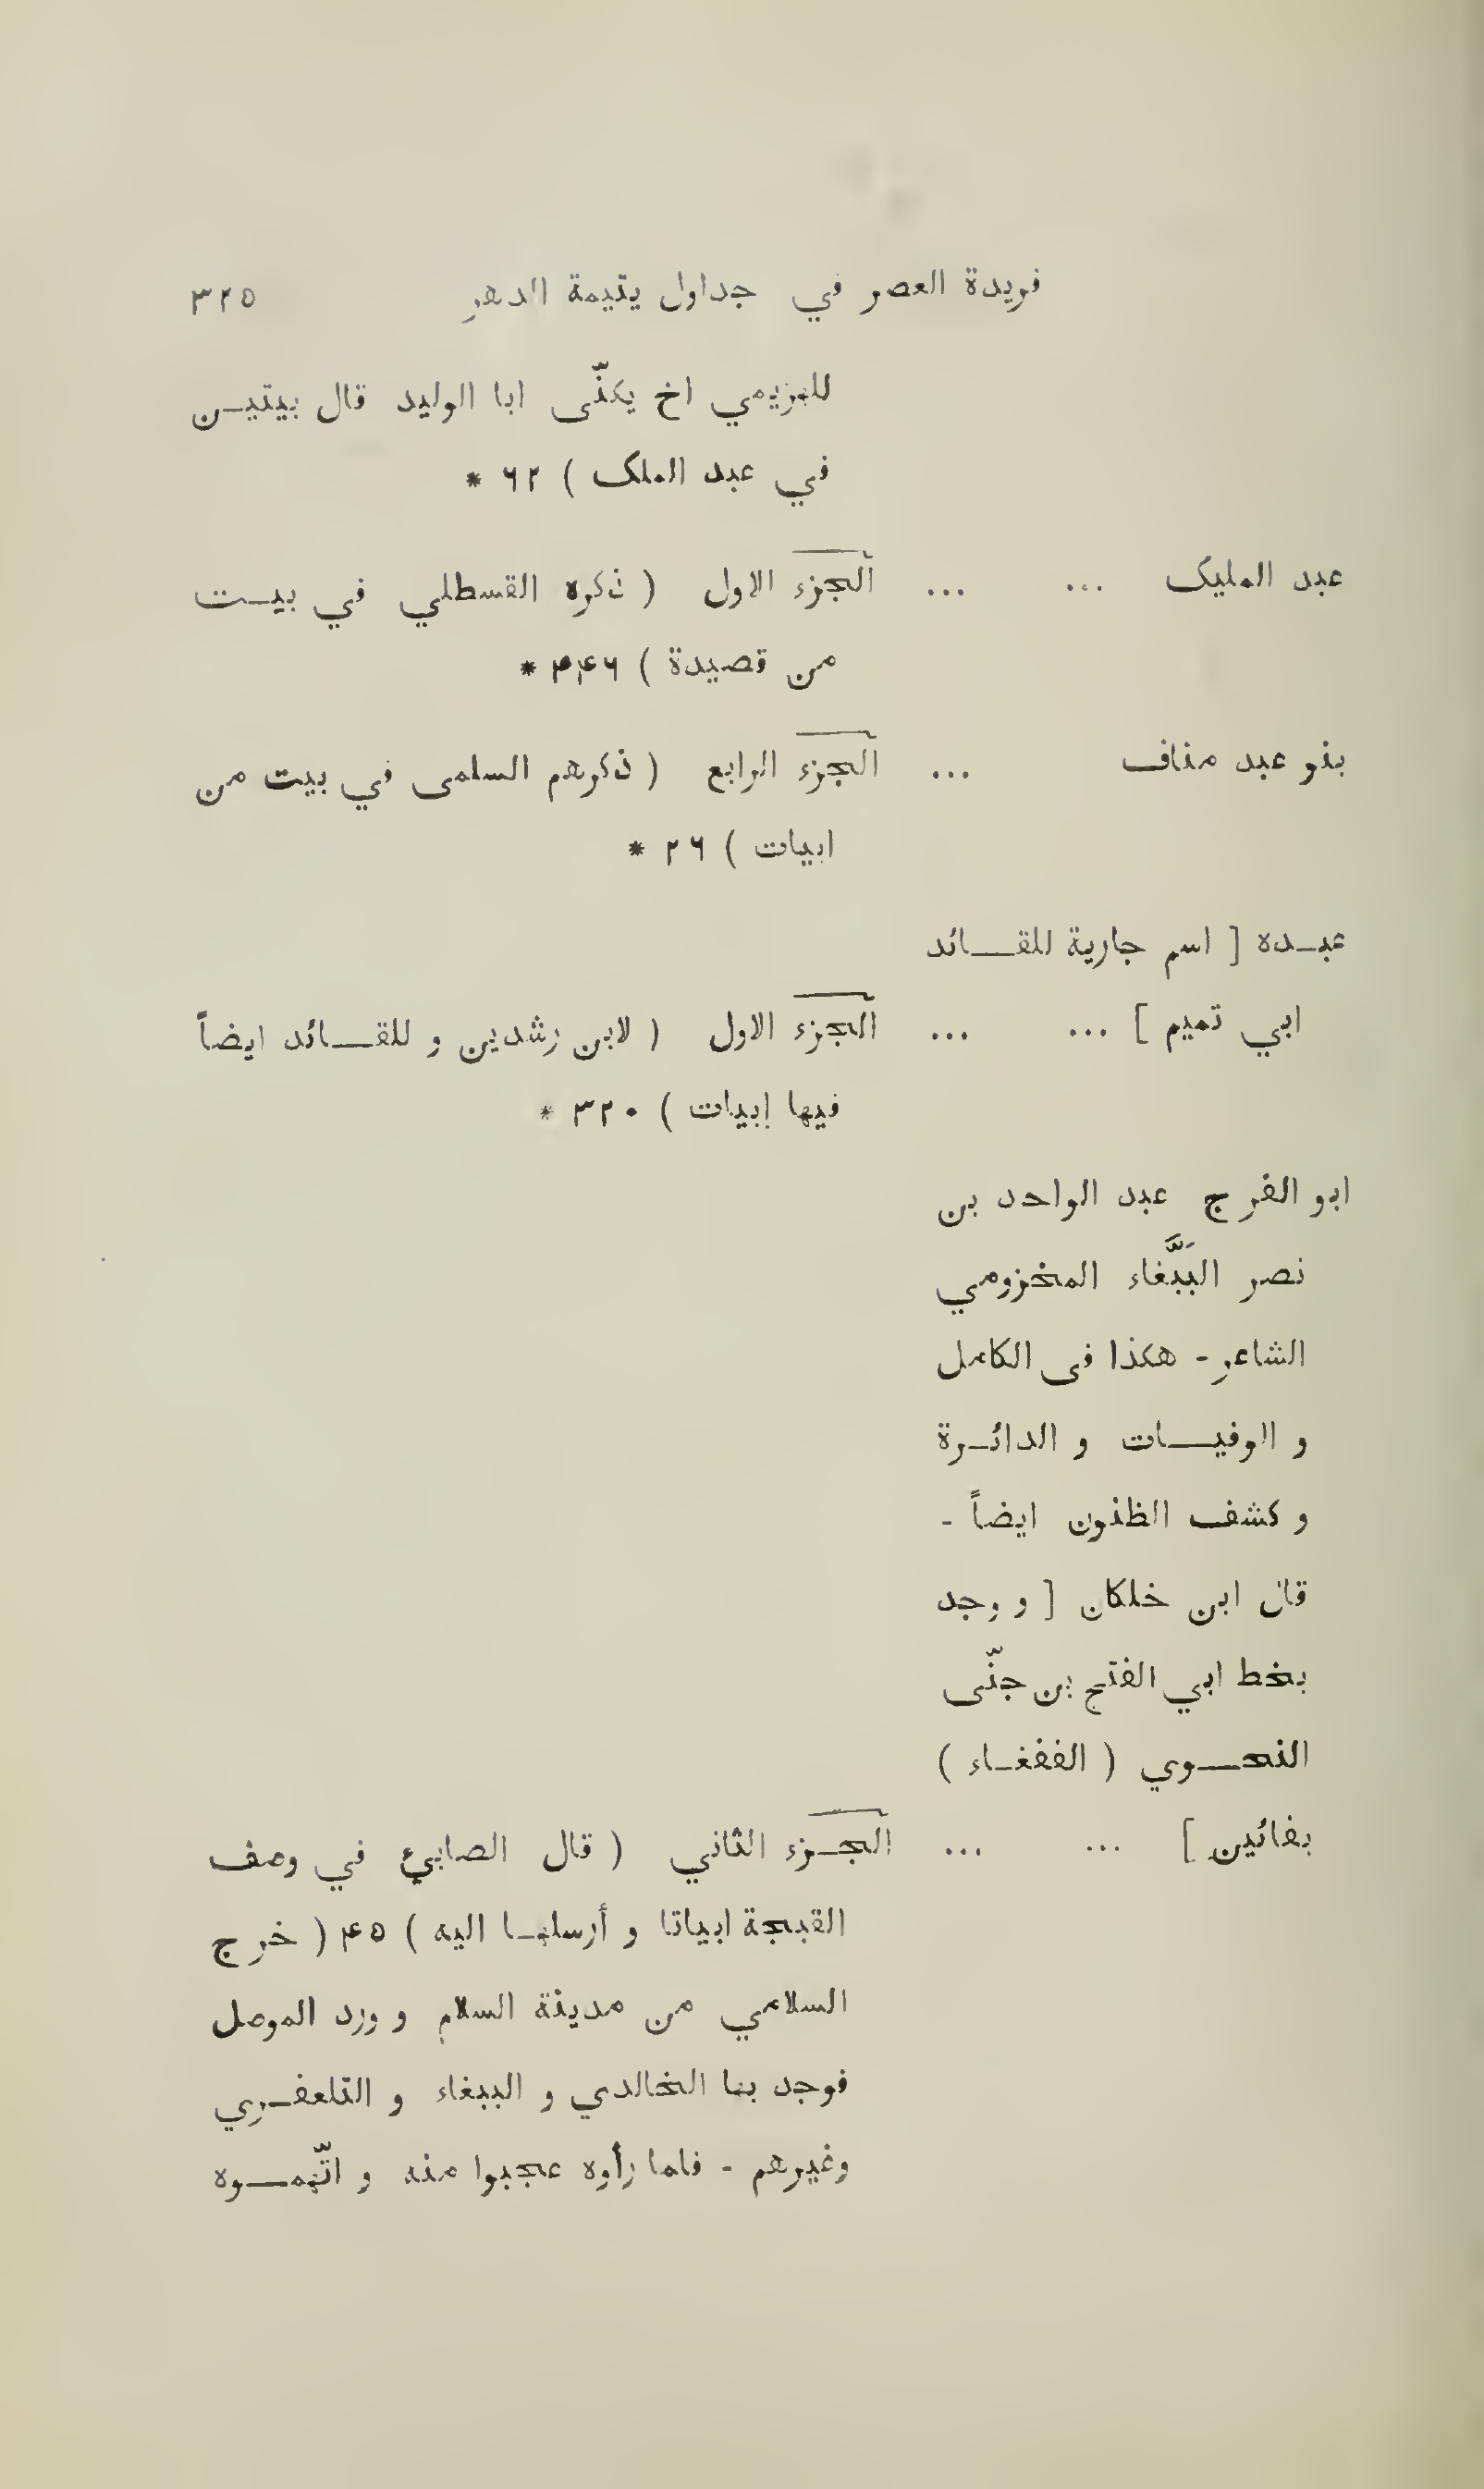 فريدة العصر في جداول يتيمة الدهر ٣٢٥
للهزيمي اخ يكنّى ابا الوليد قال بيتين
في عبد الملک ) ٦٢ *
عبد المليک ... ... الجزء الاول ( ذكره القسطلي في بيت
من قصيدة ) ۴۴٦ *
بنو عبد مناف ... الجزء الرابع ( ذكرهم السلمى في بيت من
ابيات ) ٢٦ *
عبده [ اسم جارية للقائد
ابي تميم ] ... ... الجزء الاول ( لابن رشدين و للقائد ايضاً
فيها ابيات ) ٣٢٠ *
ابو الفرج عبد الواحد بن
نصر الببَّغاء المخزومي
الشاعر - هكذا فى الكامل
و الوفيات و الدائرة
و كشف الظنون ايضاً -
قال ابن خلكان [ و وجد
بخط ابي الفتح بن جنّى
النحوي ( الففغاء )
بفائين ] ... ... الجزء الثاني ( قال الصابيء في وصف
القبجة ابياتا و أرسلها اليه ) ۴٥ ( خرج
السلامي من مدينة السلام و ورد الموصل
فوجد بها الخالدي و الببغاء و التلعفري
وغيرهم - فلما رأوه عجبوا منه و اتّهموه